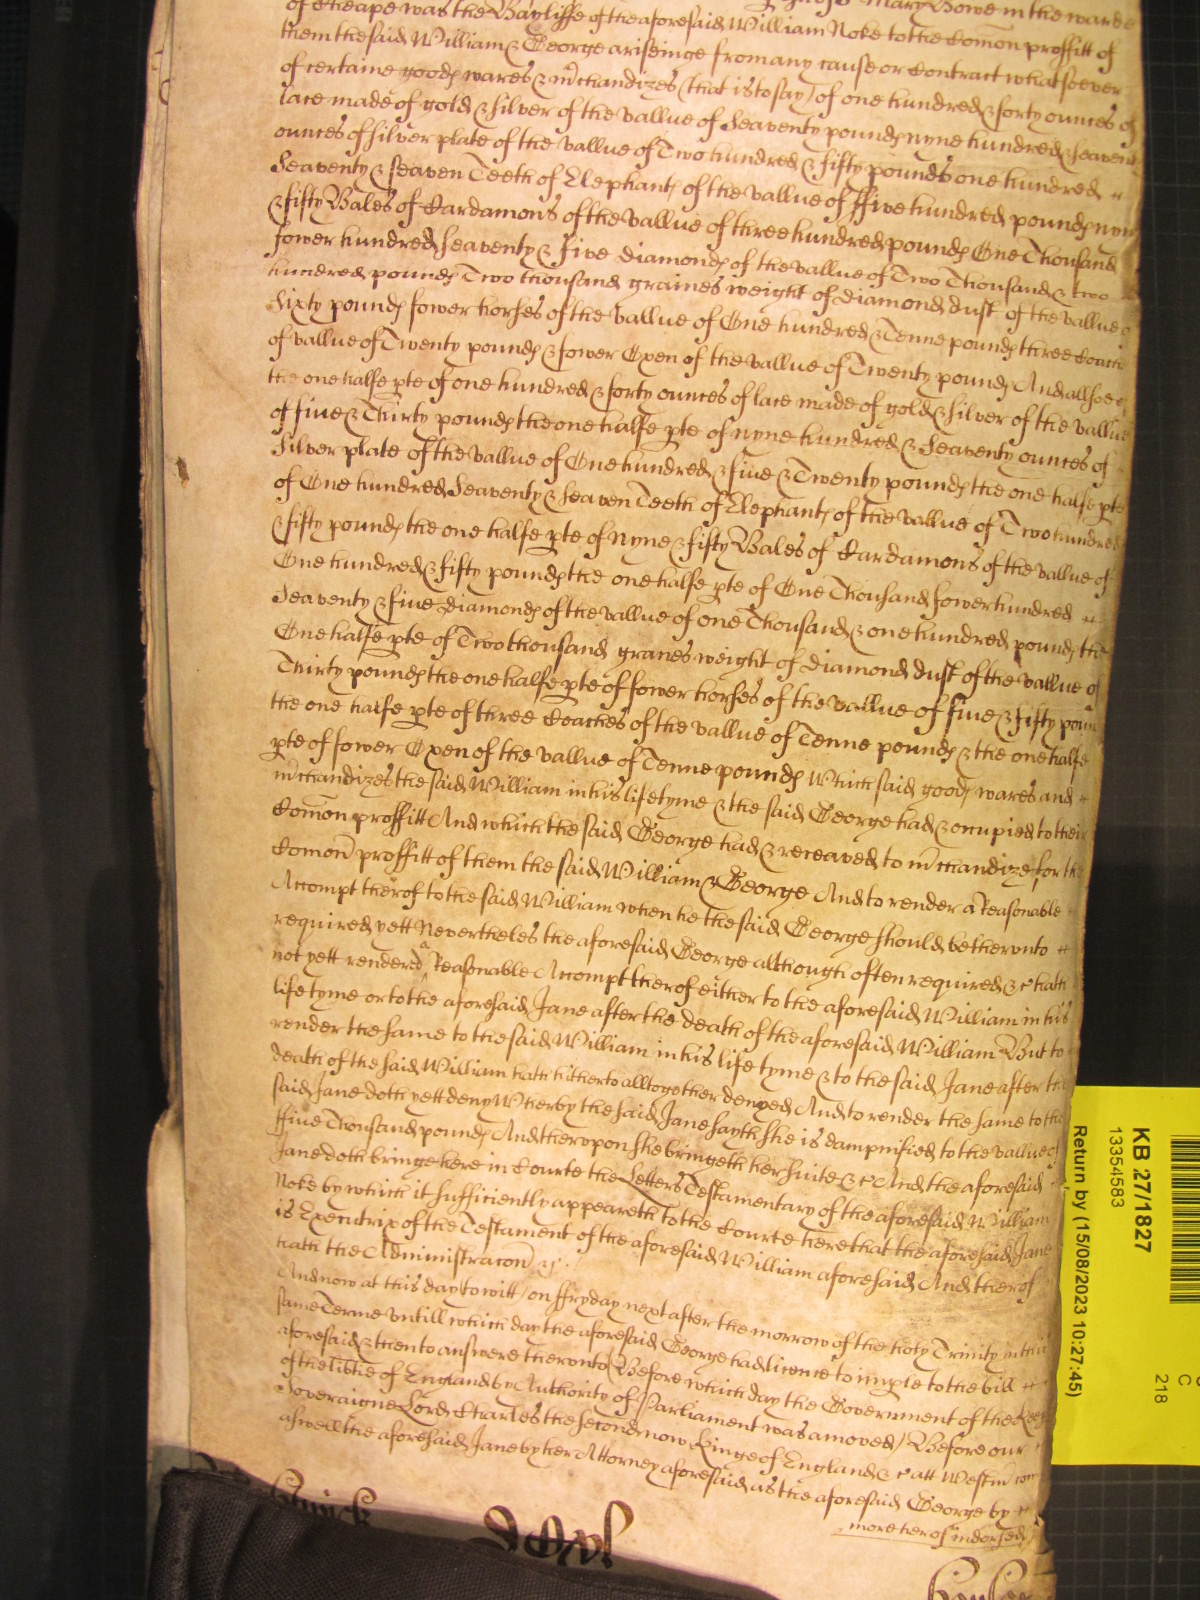 Mary Bowe in the warde
of Cheape was the Bayliffe of the aforesaid William Noke to the Comon proffitt of
them the said William & George ariseinge from any cause or Contract whatsoever
of certaine goodes wares & mrchandizes (that is to say) of one hundred & forty ounces of
lace made of gold & silver of the vallue of Seaventy poundes nyne hundred & seaventy
ounces of silver plate of the vallue of Two hundred & fifty pounds one hundred
Seaventy & seaven Teeth of Elephantes of the vallue of ffive hundred poundes nyne
& fifty Bales of Cardamons of the vallue of three hundred poundes One Thousand
fower hundred seaventy & five diamondes of the vallue of Two Thousand & two
hundred poundes Two thousand graines weight of diamond dust of the vallue of
Sixty poundes fower horses of the vallue of One hundred & Tenne poundes three Coaches
of vallue of Twenty poundes & fower Oxen of the vallue of Twenty poundes And allsoe of
the one halfe pte of one hundred & forty ounces of lace made of gold & silver of the vallue
of five & Thirty poundes the one halfe pte of nyne hundred & Seaventy ounces of
Silver plate of the vallue of One hundred & five & Twenty poundes the one halfe pte
of One hundred Seaventy & seaven Teeth of Elephantes of the vallue of Two hundred
& fifty poundes the one halfe pte of nyne & fifty Bales of Cardamons of the vallue of
One hundred & fifty poundes the one halfe pte of One Thousand fower hundred
Seaventy & five diamondes of the vallue of one Thousand & one hundred poundes the
One halfe pte of Two thousand granes weight of diamond dust of the vallue of
Thirty poundes the one halfe pte of fower horses of the vallue of five & fifty poundes
the one halfe pte of three Coaches of the vallue of Tenne poundes & the one halfe
pte of fower Oxen of the vallue of Tenne poundes Which said goodes wares and
mrchandizes the said William in his life tyme & the said George had & occupied to their
Comon proffitt And which the said George had & receaved to mrchandize for the
Comon proffitt of them the said William & George And to render a Reasonable
Accompt therof to the said William when he the said George should be therunto
required yett Nevertheles the aforesaid George although often required &c hath
not yett rendered a Reasonable Accompt therof either to the aforesaid William in his
life tyme or to the aforesaid Jane after the death of the aforesaid William But to
render the same to the said William in his life tyme & to the said Jane after the
death of the said William hath hitherto alltogether denyed And to render the same to the
said Jane doth yett deny Wherby the said Jane sayth she is dampnified to the vallue of
ffive Thousand poundes And therupon she bringeth her suite &c And the aforesaid
Jane doth bringe here in Courte the Letters Testamentary of the aforesaid William
Noke by which it sufficiently appeareth to the Courte here that the aforesaid Jane
is Executrix of the Testament of the aforesaid William aforesaid And therof
hath the Administracon &c.
And now at this day to witt on ffryday next after the morrow of the holy Trinity in this
same Terme Untill which day the aforesaid George had licence to imple to the bill
aforesaid & then to answere therunto (Before which day the Government of the Keepers
of the libtie of England by Authority of Parliament was amoved) Before our
Soveraigne Lord Charles the second now Kinge of England &c att Westm come
aswell the aforesaid Jane by her Attorney aforesaid as the aforesaid George by
more herof indorsed
KB 27/1827
13354583
Return by (15/08/2023 10:27:45)
C
218